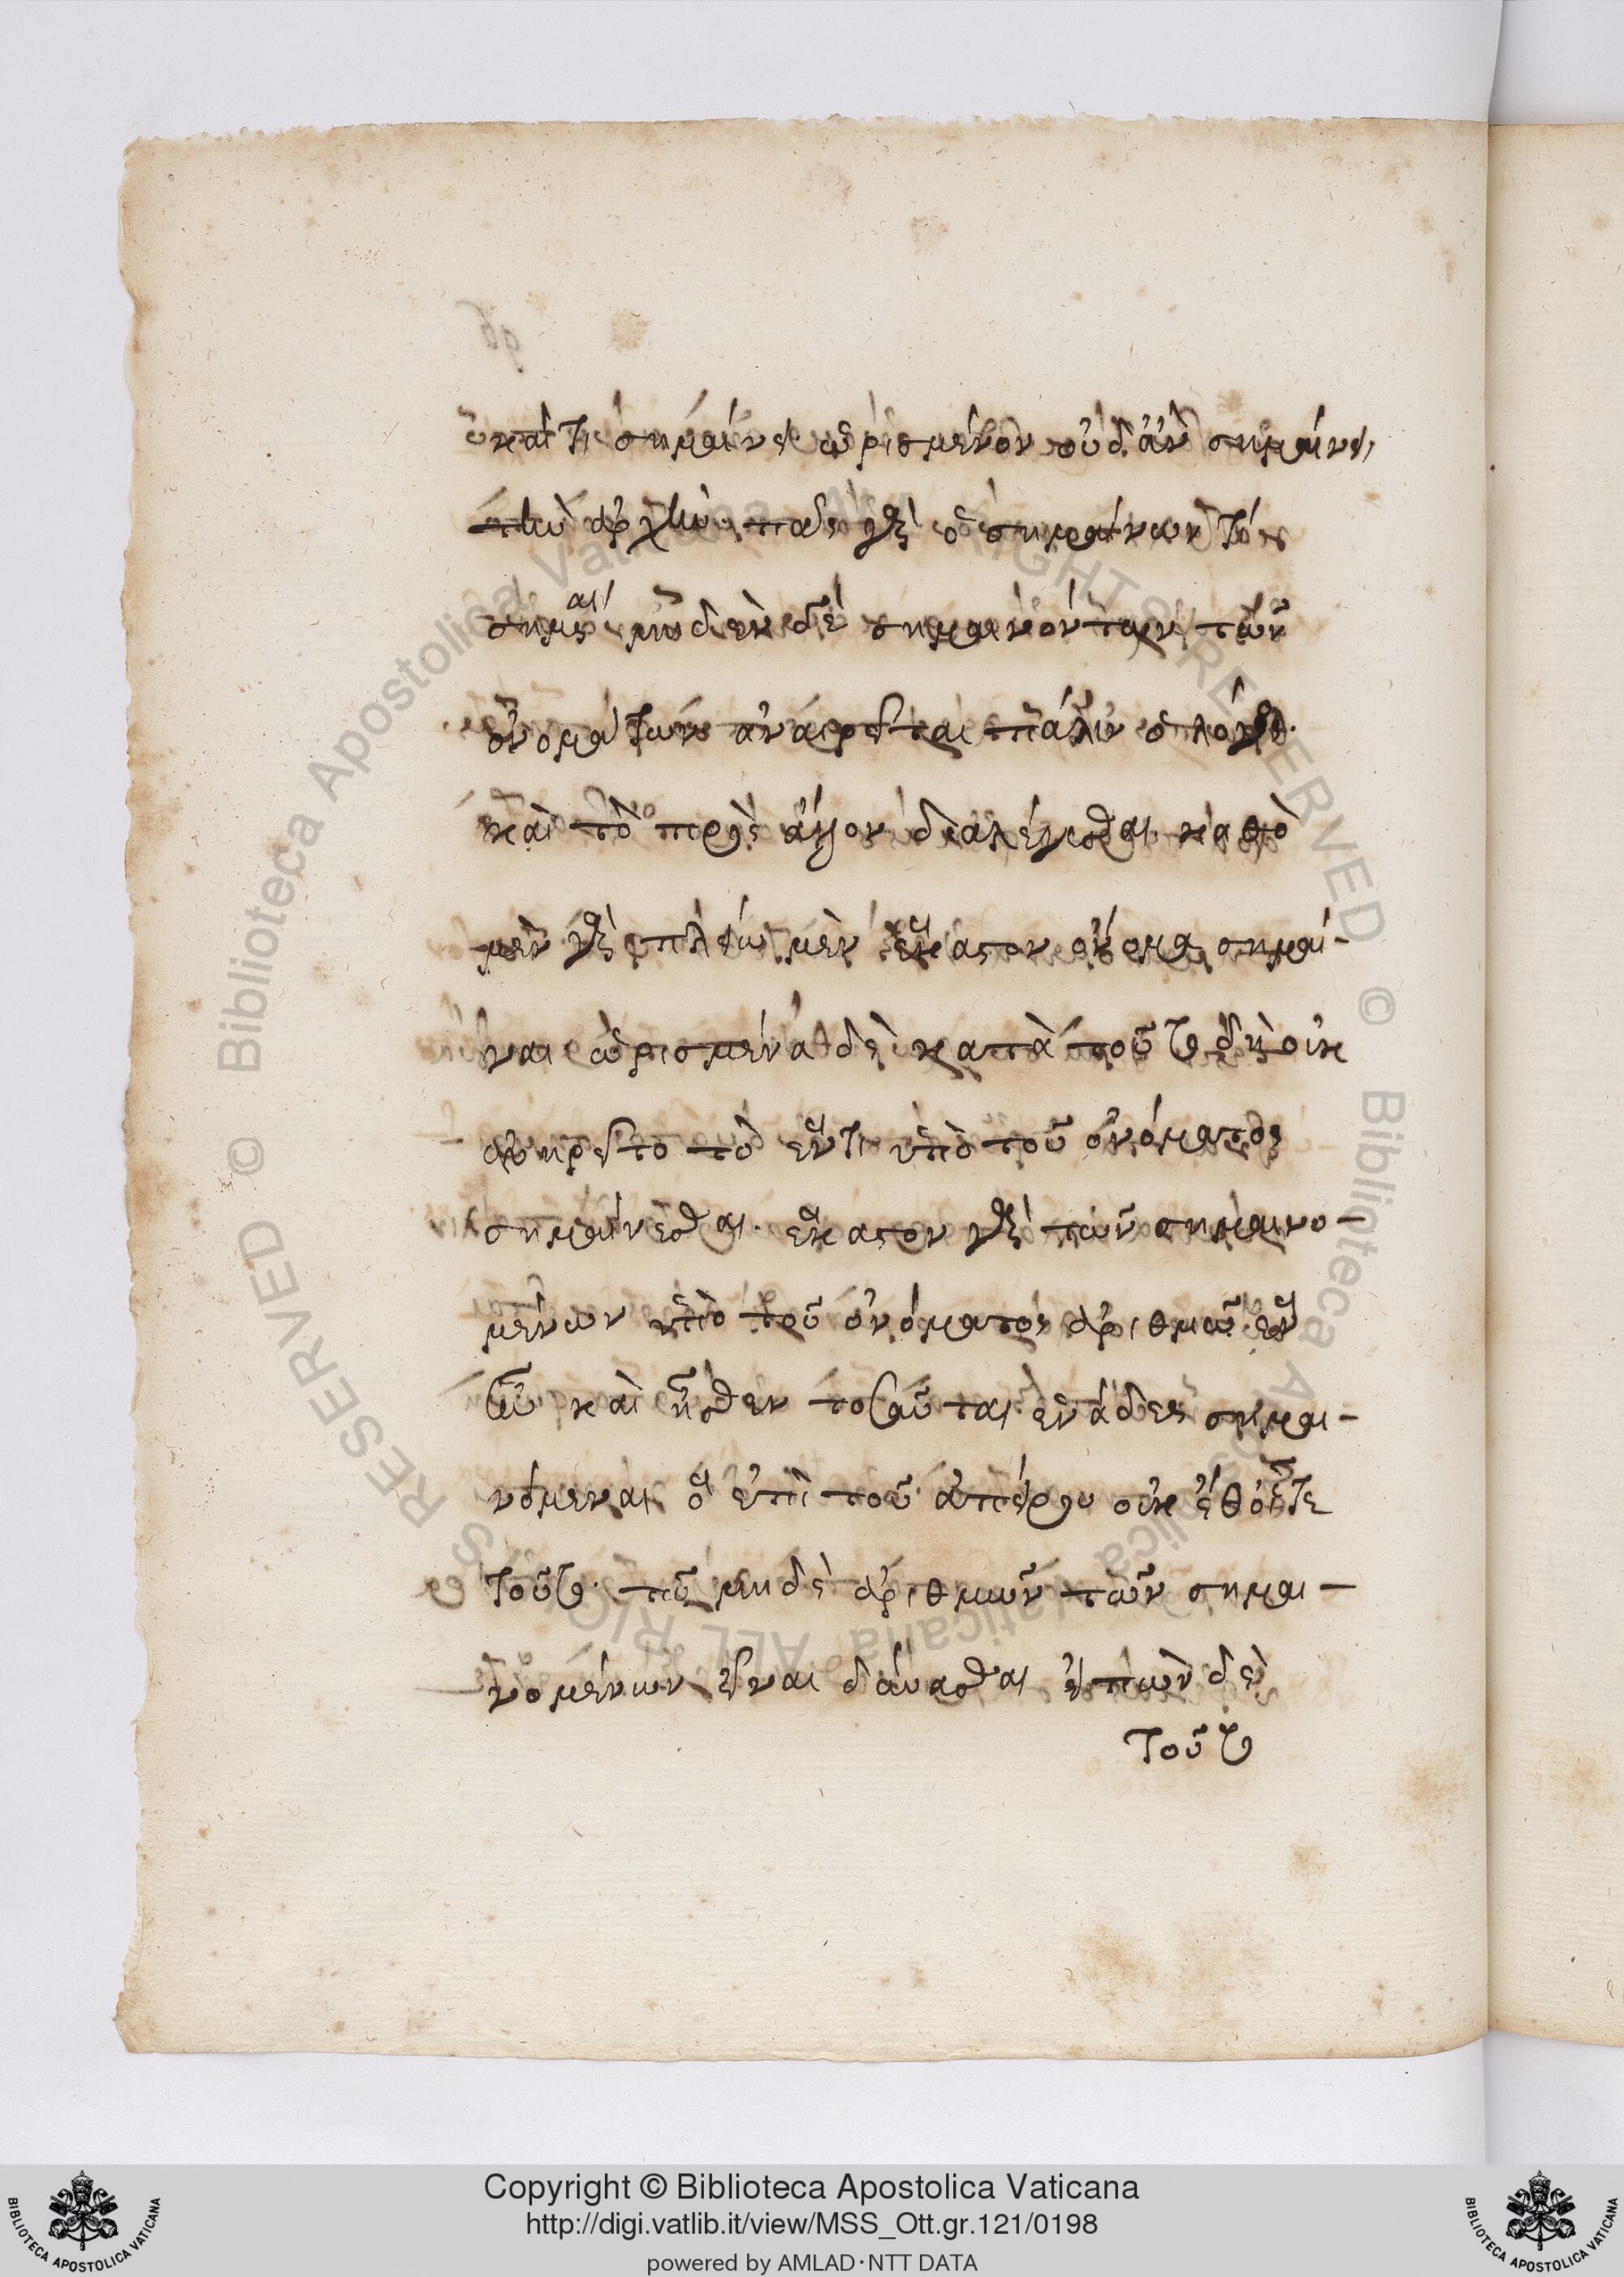 καί τι σημαίνει ὡρισμένον οὐδ' ἂν σημαίνοι
τὴν ἀρχὴν πᾶς γὰρ ὁ σημαίνων τόν
σημαι μηδὲν δὲ σημαινόντων τῶν
ὀνομάτων ἀναιρεῖται πάλιν ὁ λόγος
καὶ τὸ πρὸς ἄλλον διαλέγεσθαι καθὸ
μὲν γὰρ πλείω μὲν ἕκαστον ὄνομα σημαί-
ναι ὡρισμένα δὲ κατὰ τοῦτο δὴ οὐκ
ἀνηρεῖτο τὸ ἕν τι ὑπὸ τοῦ ὀνόματος
σημαίνεσθαι. ἕκαστον γὰρ τῶν σημαινο-
μένων ὑπὸ τοῦ ὀνόματος ἀριθμῷ ἓν
καὶ ἦσαν τοσαῦται ἑνάδες σημαι-
νόμεναι ὃ ἐπὶ τοῦ ἀπείρου οὐκ
τοῦτο τῷ μηδὲ ἀριθμῶν τῶν σημαι-
νομένων εἶναι δύνασθαι εἰπὼν δὲ
τοῦτο
Copyright © Biblioteca Apostolica Vaticana
http://digi.vatlib.it/view/MSS_Ott.gr.121/0198
powered by AMLAD·NTT DATA
BIBLIOTECA APOSTOLICA VATICANA
BIBLIOTECA APOSTOLICA VATICANA
© Biblioteca Apostolica Vaticana ALL RIGHTS RESERVED
© Biblioteca Apostolica Vaticana ALL RIGHTS RESERVED